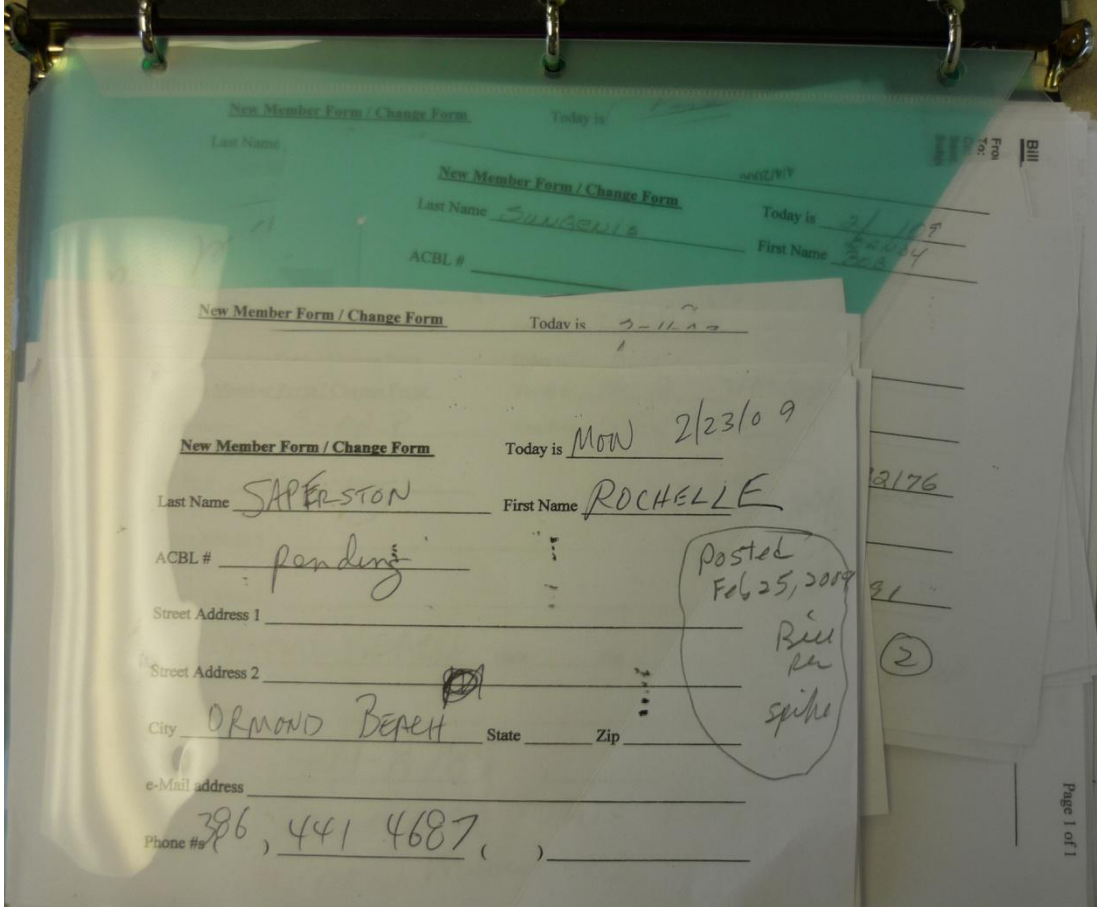 New Member Form / Change Form Today is
Last Name
4/4/2009
New Member Form / Change Form
Last Name SUNGENIS Today is 2/ /09
ACBL # First Name SANDY
BOB
Bill
From
To:
New Member Form / Change Form Today is
New Member Form / Change Form Today is MON 2/23/09
Last Name SAPERSTON First Name ROCHELLE
ACBL # pending
Street Address 1
Street Address 2
City ORMOND BEACH State Zip
e-Mail address
Phone #s 386 ) 441 4687 ( )
Posted
Feb 25, 2009
Bill
per
spike
32176
91
2
Page 1 of 1